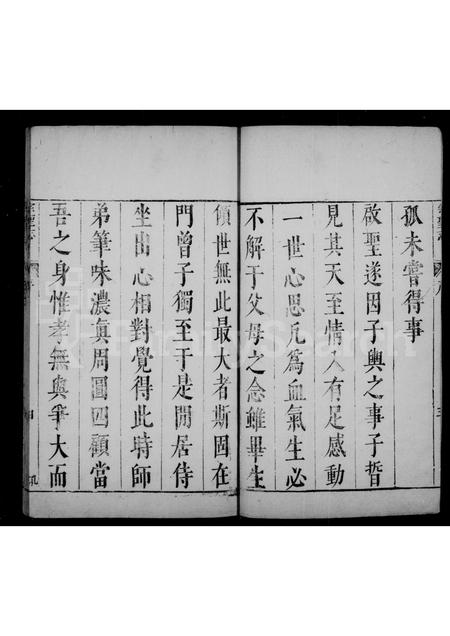 孤未嘗得事
啟聖遂因子輿之事子晳
見其天至情入有足感動
一世心思凡為血氣生必
不解于父母之念雖畢生
傾世無此最大者斯固在
門曾子獨至于是閒居侍
坐出心相對覺得此時師
弟筆味濃真周圖四顧當
吾之身惟孝無與爭大而